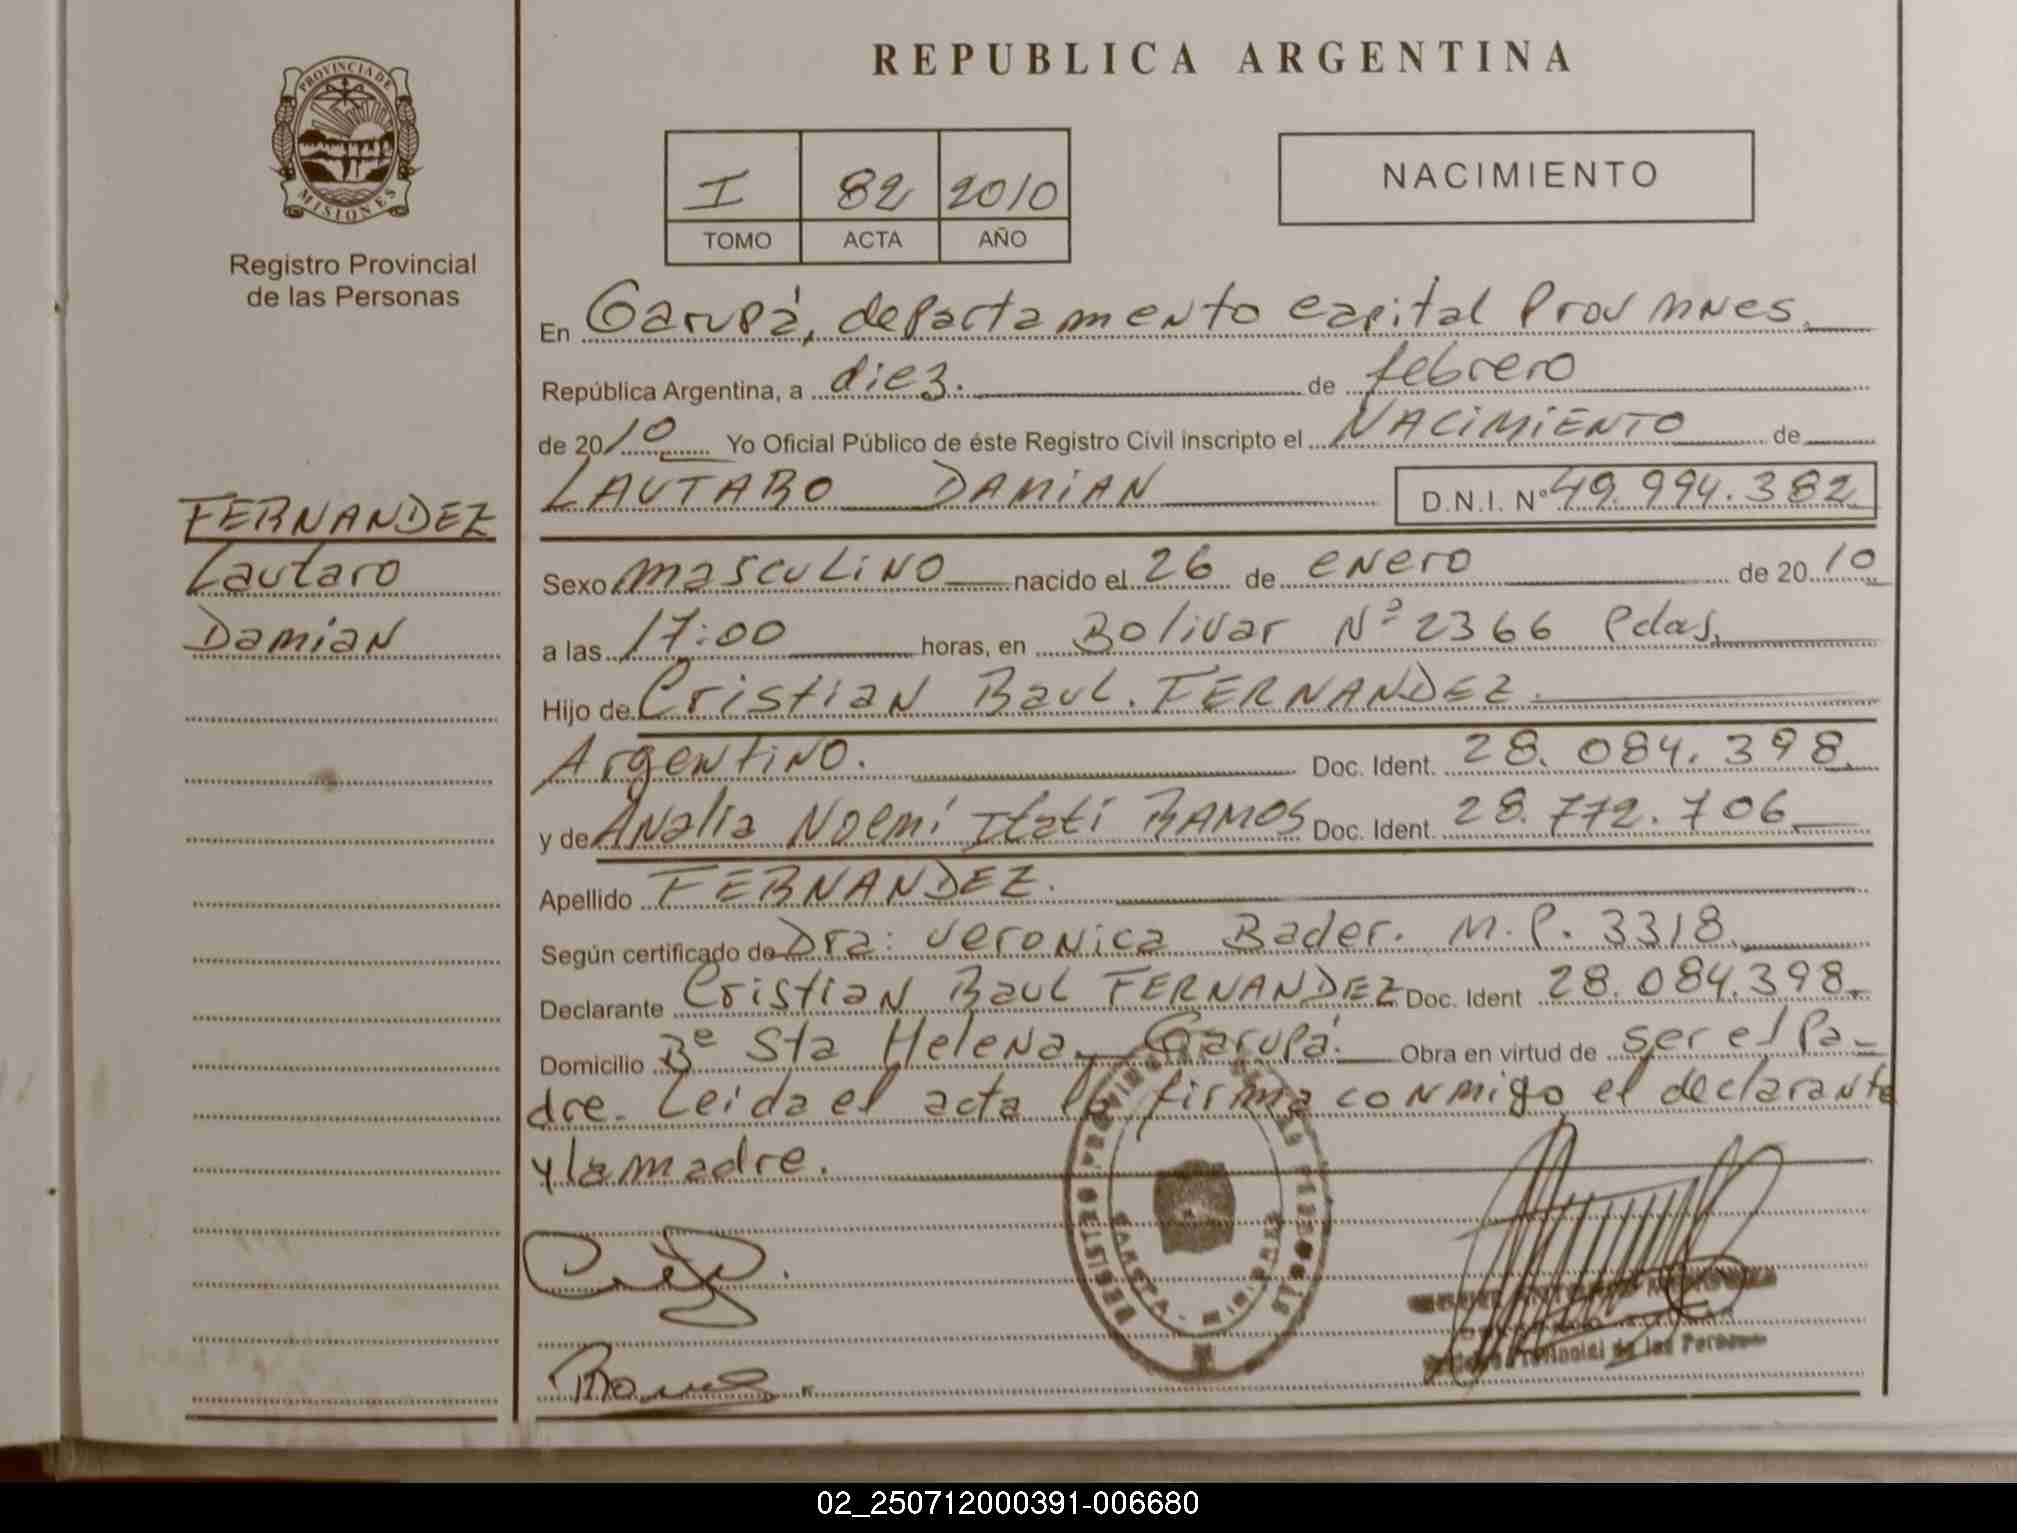 REPUBLICA ARGENTINA
PROVINCIA DE
MISIONES
Registro Provincial
de las Personas
I 82 2010
TOMO ACTA AÑO
NACIMIENTO
En Garupá, departamento capital Prov Mnes.
República Argentina, a diez. de febrero
de 2010 Yo Oficial Público de éste Registro Civil inscripto el NACIMIENTO de
LAUTARO DAMIAN D.N.I. Nº 49.994.382
FERNANDEZ
Lautaro
Damian
Sexo masculino nacido el 26 de enero de 2010
a las 17:00 horas, en Bolivar Nº 2366 Pdas.
Hijo de Cristian Raul. FERNANDEZ.
Argentino. Doc. Ident. 28.084.398.
y de Analia Noemí Itatí RAMOS Doc. Ident. 28.772.706
Apellido FERNANDEZ.
Según certificado de Dra: Veronica Bader. M.P. 3318.
Declarante Cristian Raul FERNANDEZ Doc. Ident 28.084.398.
Domicilio Bº Sta Helena, Garupá. Obra en virtud de ser el Pa-
dre. Leida el acta la firma conmigo el declarante
y la madre.
de las
02_250712000391-006680